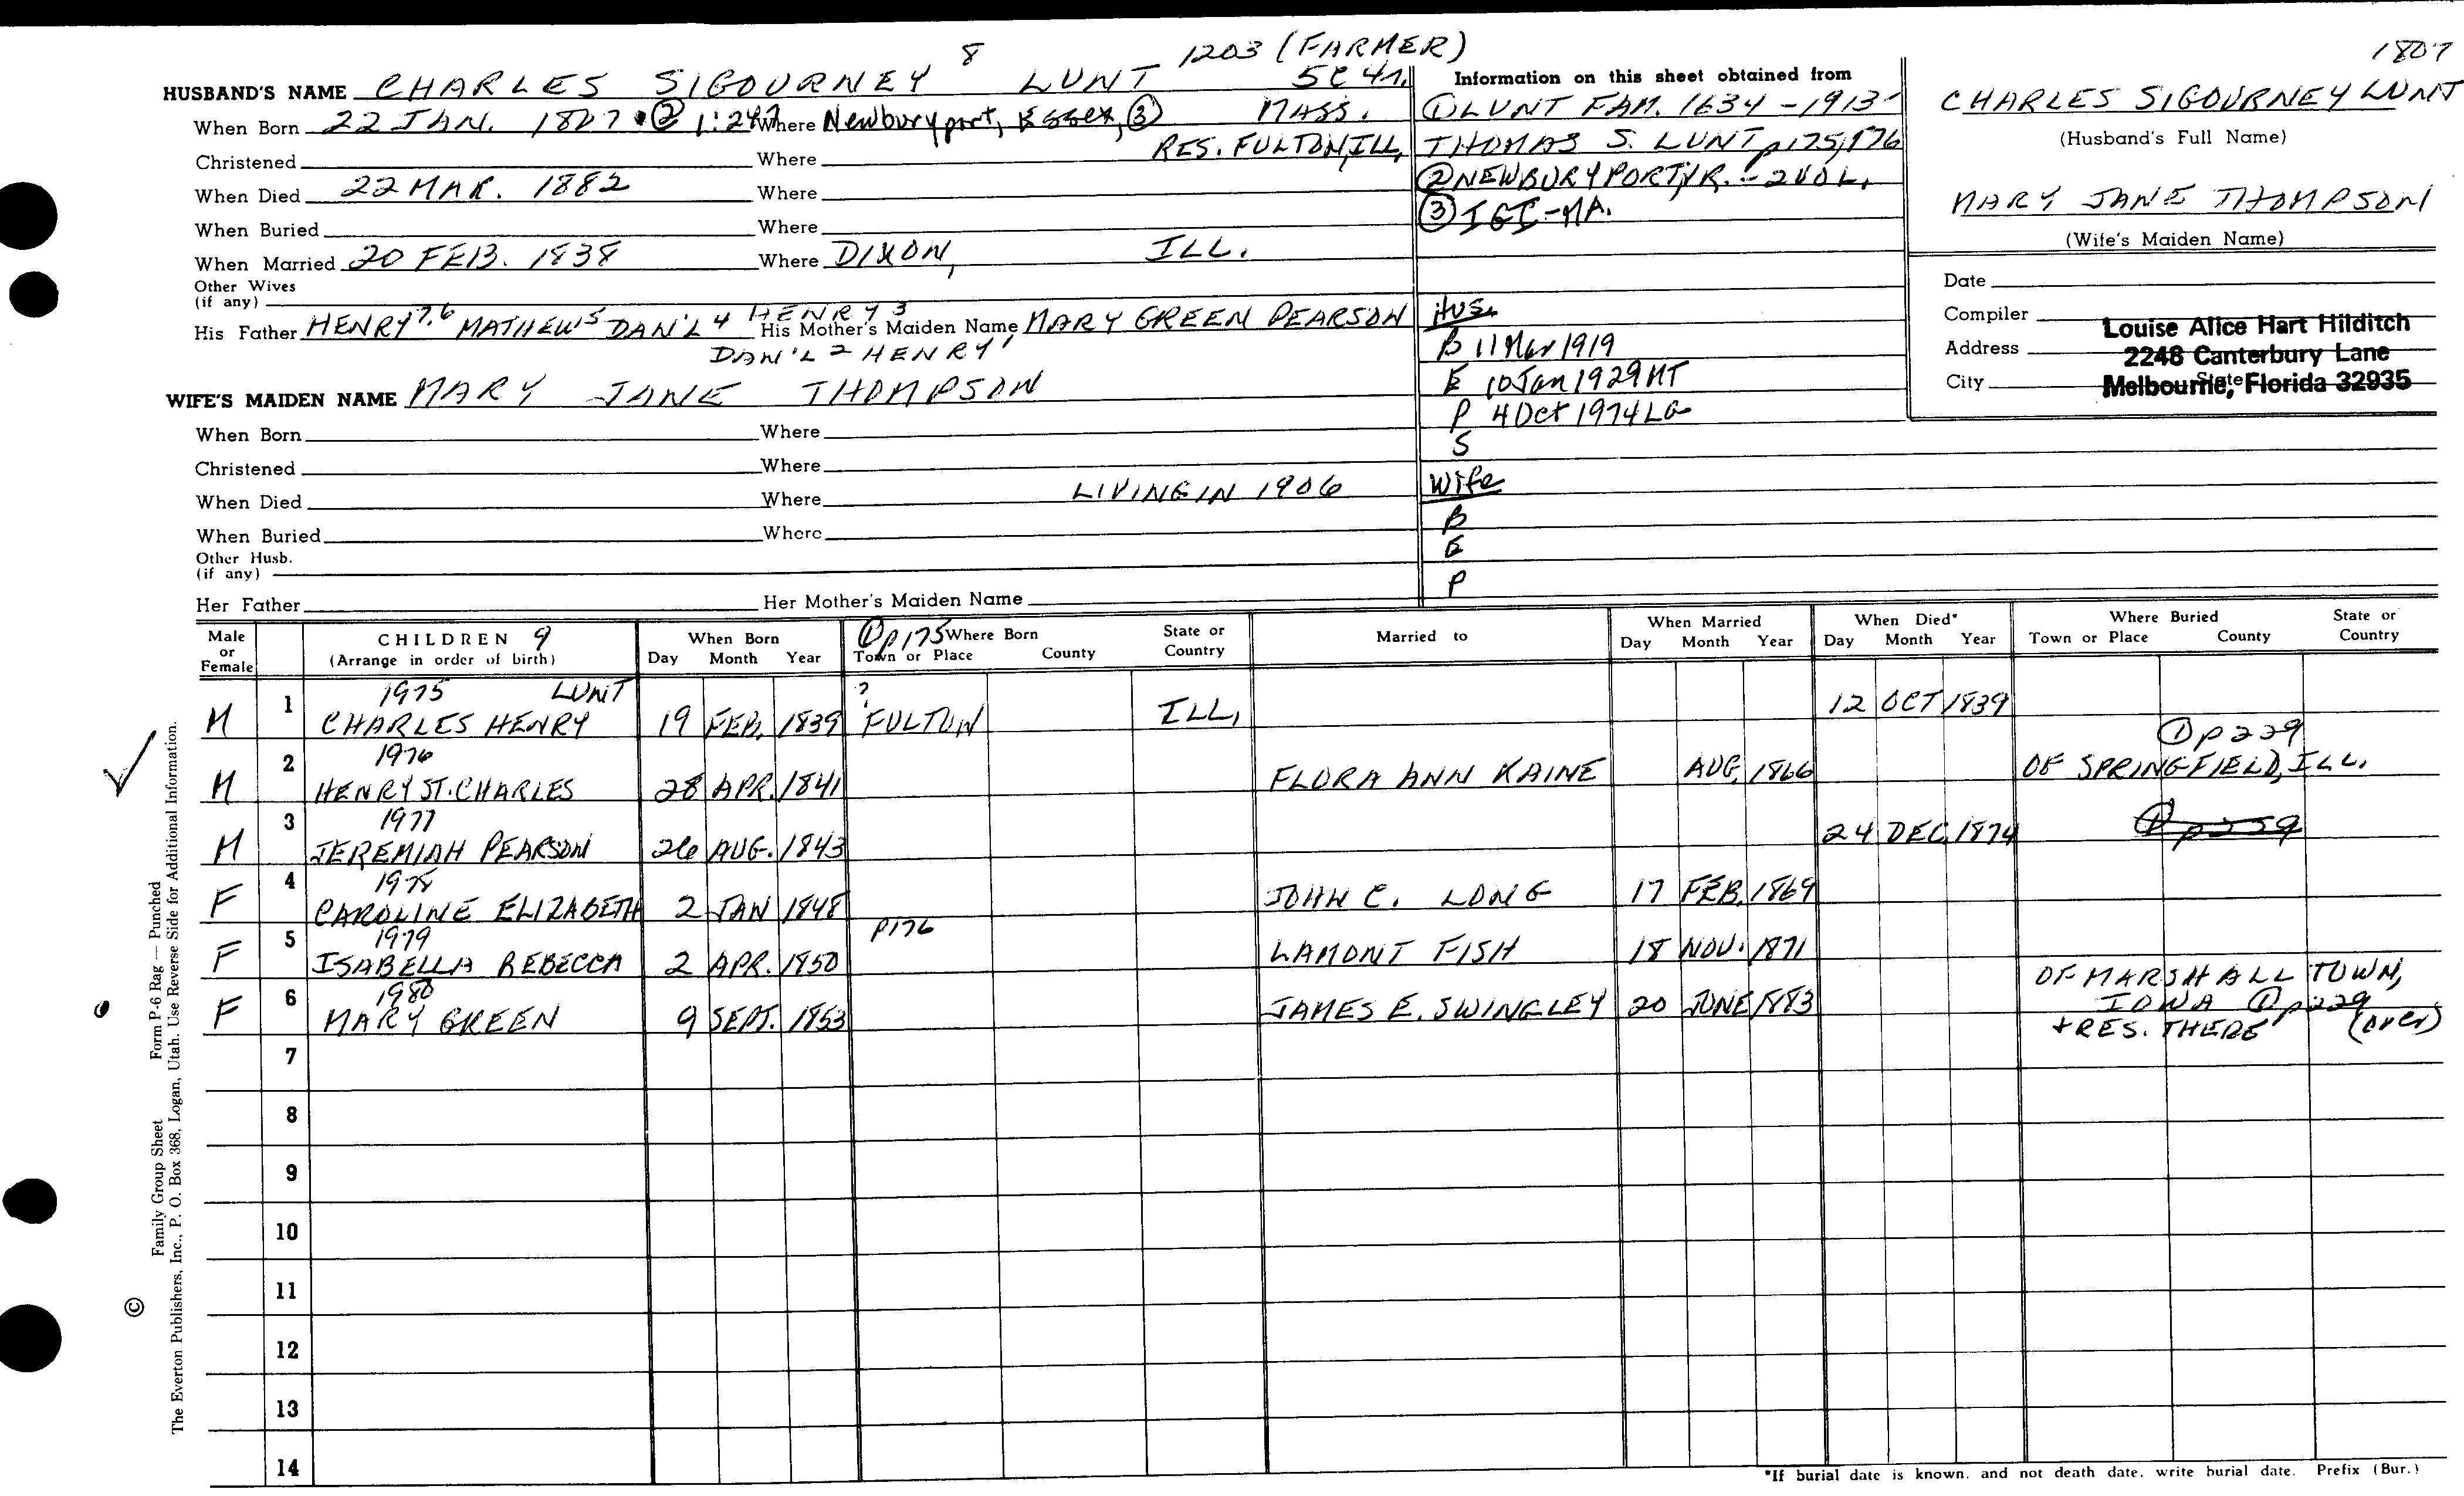 8 1203 (FARMER) 1807
HUSBAND'S NAME CHARLES SIGOURNEY LUNT
When Born 22 JAN. 1807 ② 1:247 Where Newburyport, Essex, ③ MASS.
Christened Where RES. FULTON, ILL.
When Died 22 MAR. 1882 Where
When Buried Where
When Married 20 FEB. 1838 Where DIXON, ILL.
Other Wives
(if any)
His Father HENRY 7,6 MATHEW 5 DAN'L 4 HENRY 3 His Mother's Maiden Name MARY GREEN PEARSON
DAN'L 2 HENRY 1
WIFE'S MAIDEN NAME MARY JANE THOMPSON
When Born Where
Christened Where
When Died Where LIVING IN 1906
When Buried Where
Other Husb.
(if any)
Her Father Her Mother's Maiden Name
Information on this sheet obtained from
① LUNT FAM. 1634-1913-
THOMAS S. LUNT p175,176
② NEWBURYPORT, VR. - 2 VOL.
③ IGI-MA.
Hus.
B 11 Mar 1919
E 10 Jan 1929 MT
P 4 Oct 1974 LG
S
Wife
B
E
P
CHARLES SIGOURNEY LUNT
(Husband's Full Name)
MARY JANE THOMPSON
(Wife's Maiden Name)
Date
Compiler Louise Alice Hart Hilditch
Address 2248 Canterbury Lane
City State Melbourne, Florida 32935
Male or Female CHILDREN 9 (Arrange in order of birth) When Born Day Month Year ① p175 Where Born Town or Place County State or Country Married to When Married Day Month Year When Died* Day Month Year Where Buried Town or Place County State or Country
1975 LUNT ?
M 1 CHARLES HENRY 19 FEB. 1839 FULTON ILL. 12 OCT 1839
1976 ① p229
M 2 HENRY ST. CHARLES 28 APR. 1841 FLORA ANN KAINE AUG. 1866 OF SPRINGFIELD, ILL.
1977
M 3 JEREMIAH PEARSON 26 AUG. 1843 24 DEC. 1874 ① p229
1978
F 4 CAROLINE ELIZABETH 2 JAN 1848 JOHN C. LONG 17 FEB. 1869
1979 P176
F 5 ISABELLA REBECCA 2 APR. 1850 LAMONT FISH 18 NOV. 1871
1980 OF MARSHALL TOWN,
F 6 MARY GREEN 9 SEPT. 1853 JAMES E. SWINGLEY 20 JUNE 1883 IOWA ① p229
+ RES. THERE (over)
7
8
9
10
11
12
13
14
*If burial date is known, and not death date, write burial date. Prefix (Bur.)
Family Group Sheet Form P-6 Rag — Punched
© The Everton Publishers, Inc., P. O. Box 368, Logan, Utah. Use Reverse Side for Additional Information.